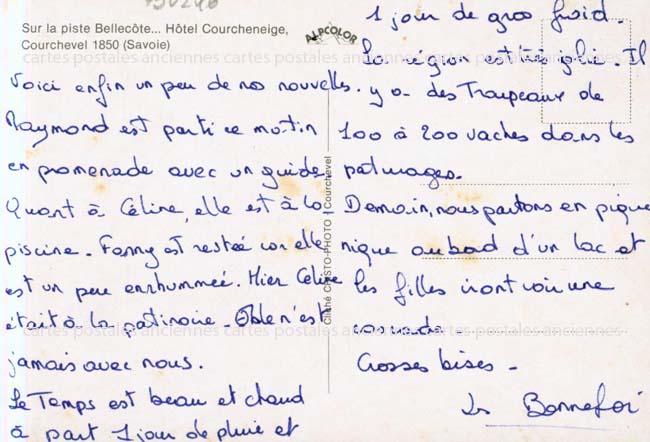 Sur la piste Bellecôte... Hôtel Courcheneige,
Courchevel 1850 (Savoie)
ALPCOLOR
cartes postales anciennes cartes postales anciennes cartes postales anciennes
Voici enfin un peu de nos nouvelles.
Raymond est parti ce matin
en promenade avec un guide.
Quant à Céline, elle est à la
piscine. Fanny est restée car elle
est un peu enrhummée. Hier Céline
était à la patinoire. Elle n'est
jamais avec nous.
Le Temps est beau et chaud
à part 1 jour de pluie et
Cliché CRISTO-PHOTO Courchevel
1 jour de gros froid.
La région est très jolie. Il
y a des Troupeaux de
100 à 200 vaches dans les
paturages.
Demain, nous partons en pique
nique au bord d'un lac et
les filles iront voir une
cartes postales anciennes cartes postales anciennes cartes postales anciennes
Grosses bises -
Les Bonnefoi